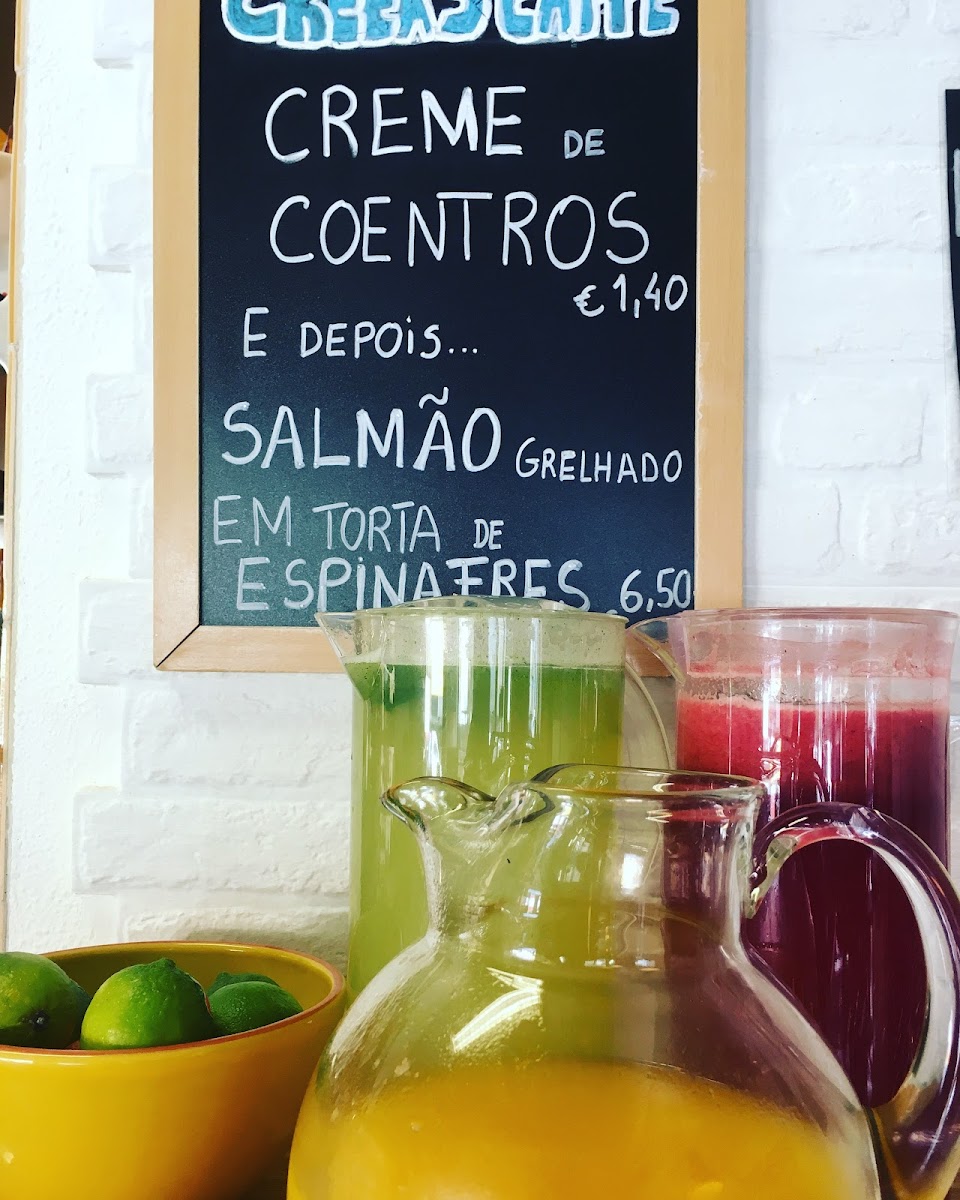 CREME DE
COENTROS
€ 1,40
E DEPOIS...
SALMÃO GRELHADO
EM TORTA DE
ESPINAFRES 6,50